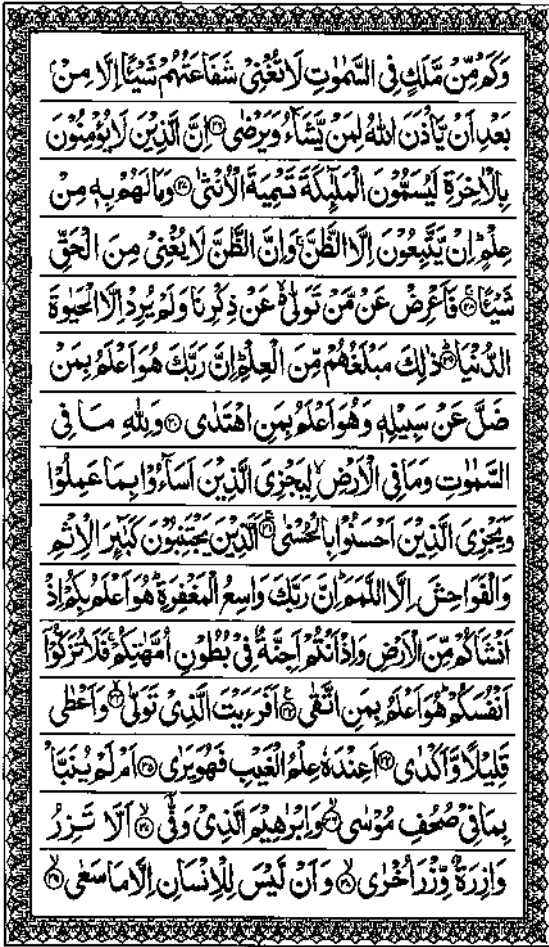 وَكَمْ مِّنْ مَّلَكٍ فِى السَّمٰوٰتِ لَا تُغْنِىْ شَفَاعَتُهُمْ شَيْـًٔا اِلَّا مِنْۢ
بَعْدِ اَنْ يَّاْذَنَ اللّٰهُ لِمَنْ يَّشَآءُ وَيَرْضٰى ۝۲۶ اِنَّ الَّذِيْنَ لَا يُؤْمِنُوْنَ
بِالْاٰخِرَةِ لَيُسَمُّوْنَ الْمَلٰٓئِكَةَ تَسْمِيَةَ الْاُنْثٰى ۝۲۷ وَمَا لَهُمْ بِهٖ مِنْ
عِلْمٍ ؕ اِنْ يَّتَّبِعُوْنَ اِلَّا الظَّنَّ ۚ وَاِنَّ الظَّنَّ لَا يُغْنِىْ مِنَ الْحَقِّ
شَيْـًٔا ۝۲۸ فَاَعْرِضْ عَنْ مَّنْ تَوَلّٰى ۙ عَنْ ذِكْرِنَا وَلَمْ يُرِدْ اِلَّا الْحَيٰوةَ
الدُّنْيَا ؕ۝۲۹ ذٰلِكَ مَبْلَغُهُمْ مِّنَ الْعِلْمِ ؕ اِنَّ رَبَّكَ هُوَ اَعْلَمُ بِمَنْ
ضَلَّ عَنْ سَبِيْلِهٖ وَهُوَ اَعْلَمُ بِمَنِ اهْتَدٰى ۝۳۰ وَلِلّٰهِ مَا فِى
السَّمٰوٰتِ وَمَا فِى الْاَرْضِ ۙ لِيَجْزِىَ الَّذِيْنَ اَسَآءُوْا بِمَا عَمِلُوْا
وَيَجْزِىَ الَّذِيْنَ اَحْسَنُوْا بِالْحُسْنٰى ۝۳۱ اَلَّذِيْنَ يَجْتَنِبُوْنَ كَبٰٓئِرَ الْاِثْمِ
وَالْفَوَاحِشَ اِلَّا اللَّمَمَ ؕ اِنَّ رَبَّكَ وَاسِعُ الْمَغْفِرَةِ ؕ هُوَ اَعْلَمُ بِكُمْ اِذْ
اَنْشَاَكُمْ مِّنَ الْاَرْضِ وَاِذْ اَنْتُمْ اَجِنَّةٌ فِىْ بُطُوْنِ اُمَّهٰتِكُمْ ۚ فَلَا تُزَكُّوْٓا
اَنْفُسَكُمْ ؕ هُوَ اَعْلَمُ بِمَنِ اتَّقٰى ۝۳۲ اَفَرَءَيْتَ الَّذِىْ تَوَلّٰى ۙ۝۳۳ وَاَعْطٰى
قَلِيْلًا وَّاَكْدٰى ۝۳۴ اَعِنْدَهٗ عِلْمُ الْغَيْبِ فَهُوَ يَرٰى ۝۳۵ اَمْ لَمْ يُنَبَّاْ
بِمَا فِىْ صُحُفِ مُوْسٰى ۙ۝۳۶ وَاِبْرٰهِيْمَ الَّذِىْ وَفّٰٓى ۙ۝۳۷ اَلَّا تَزِرُ
وَازِرَةٌ وِّزْرَ اُخْرٰى ۙ۝۳۸ وَاَنْ لَّيْسَ لِلْاِنْسَانِ اِلَّا مَا سَعٰى ۙ۝۳۹